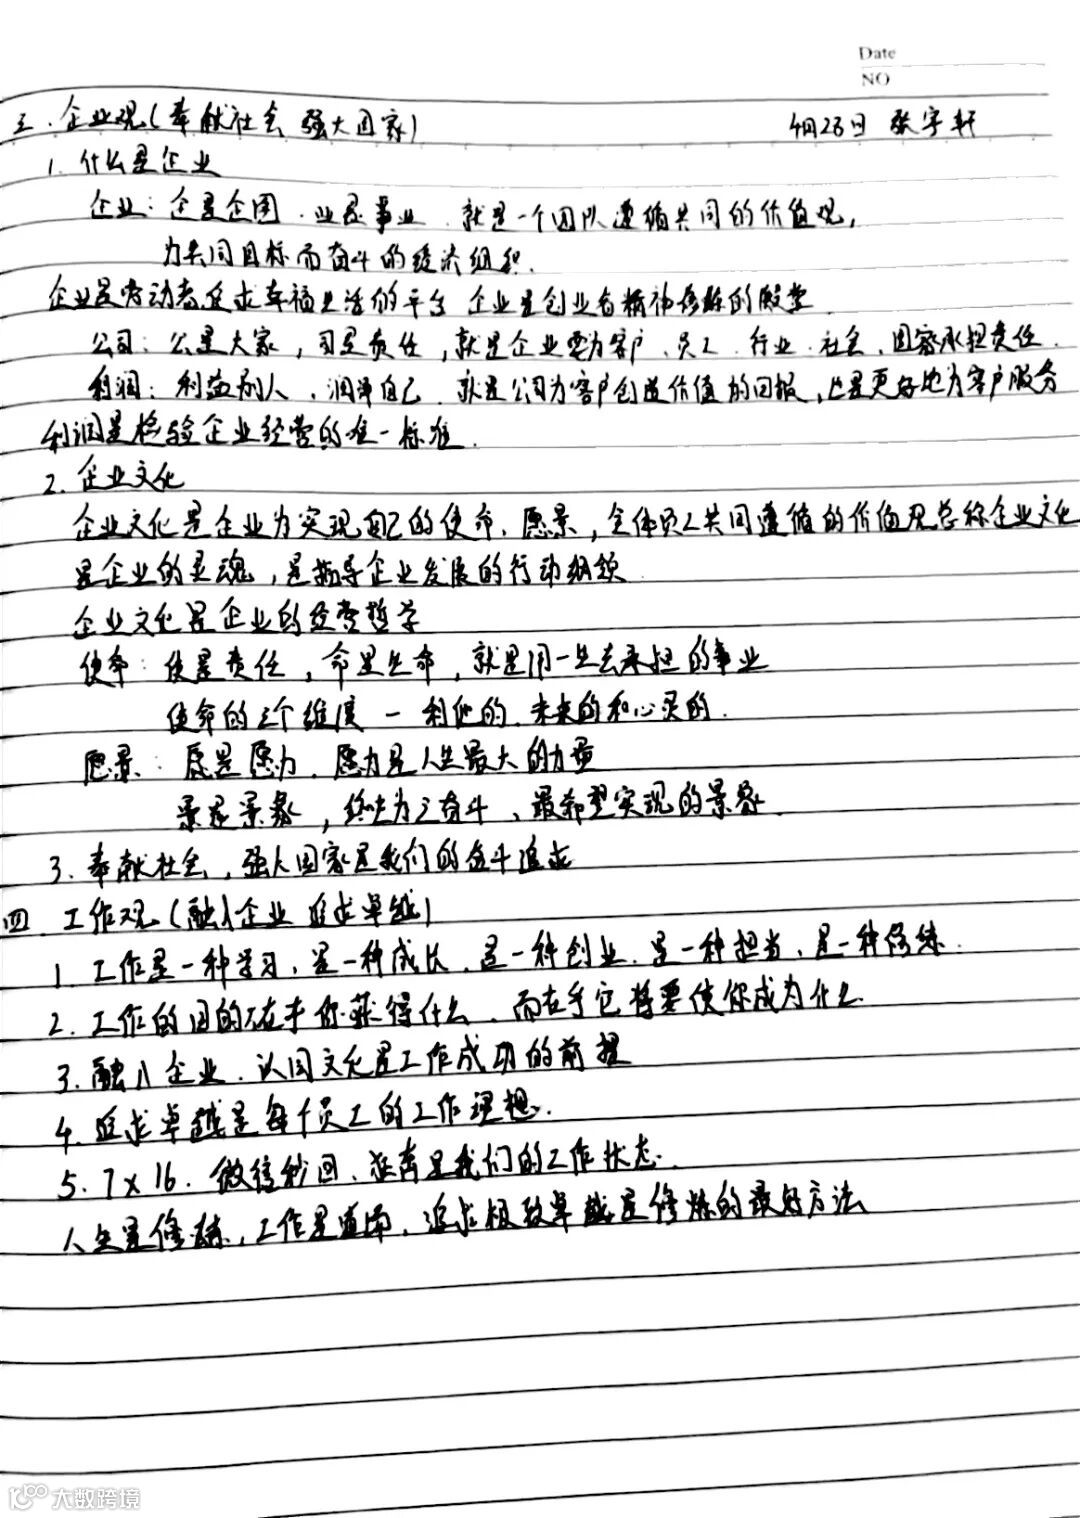 Date
NO
三.企业观(奉献社会 强大国家) 4月23日 张宇轩
1.什么是企业
企业:企是企图.业是事业.就是一个团队遵循共同的价值观,
为共同目标而奋斗的经济组织.
企业是劳动者追求幸福生活的平台 企业是创业者精神修炼的殿堂
公司:公是大家,司是责任,就是企业要为客户、员工、行业、社会、国家承担责任.
利润:利益别人,润泽自己.就是公司为客户创造价值的回报,也是更好地为客户服务
利润是检验企业经营的唯一标准.
2.企业文化
企业文化是企业为实现自己的使命、愿景,全体员工共同遵循的价值观总称企业文化
是企业的灵魂,是指导企业发展的行动纲领
企业文化是企业的经营哲学
使命:使是责任,命是生命,就是用一生去承担的事业
使命的三个维度 — 利他的、未来的和心灵的.
愿景:愿是愿力.愿力是人生最大的力量
景是景象,终生为之奋斗、最希望实现的景象.
3.奉献社会,强大国家是我们的奋斗追求
四.工作观(融入企业 追求卓越)
1.工作是一种学习,是一种成长、是一种创业、是一种担当、是一种修炼.
2.工作的目的不在于你获得什么,而在于它将要使你成为什么
3.融入企业.认同文化是工作成功的前提
4.追求卓越是每个员工的工作理想.
5.7×16.微信秒回、狂奔是我们的工作状态.
人生是修炼,工作是道场,追求极致卓越是修炼的最好方法
大数跨境